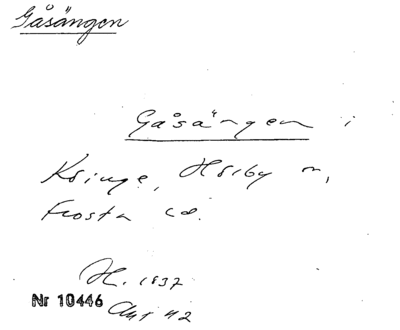 Gåsängen
Gåsängen i
Kringe, Hörby
Frosta
H. 1937
Nr 10446
42